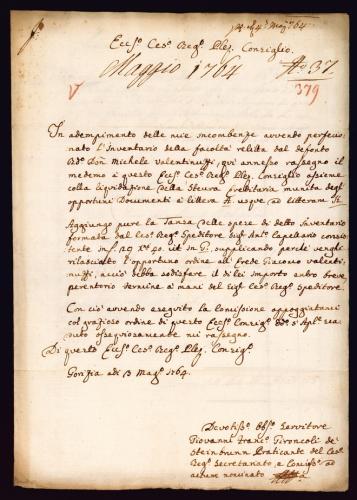 Maj. 64
Eccſ. Ceſ. Reg. Pleg. Conſiglio.
Maggio 1764
No. 37.
379
In adempimento delle mie incombenze avvendo perfezio,
nato l'Inventario della facoltà relitta dal defonto
Rdo. Don Michele Valentinuſſi, qui anneſſo raſſegno il
medemo à queſto Eccſ. Ceſ. Reg. Pleg. Conſiglio aſſieme
colla liquidazione della Steura ereditaria munita degli
opportuni Documenti à littera A. usque ad litteram
Aggiungo pure la Tanſa delle opere di detto Inventario
formata dal Ceſ. Regº Speditore Sigr. Antº. Capellaris conſis,
tente in f. 29 supplicando perche vengh
rilasciato l'opportuno ordine all' Erede Giacomo Valenti,
nuſſi, acciò debba sodisfare il di lei importo entro breve
perentorio termine ai mani del Sigr. Ceſ. Regº Speditore.
Con ciò avvendo eseguito la Comiſſione appoggiatami
col grazioso ordine di queſto Eccſ. Conſigº
duto oſſequiosamente mi raſſegno.
Di queſto Eccſ. Ceſ. Reg. Pleg. Conſigº
Gorizia adi 3 Magº 1764.
Devotiſſº Obbº Servitore
Giovanni Francº Gironcoli de
Steinbrunn Praticante del Ceſ.
Regº Secretariato, e Comiſſº ad
actum nominato